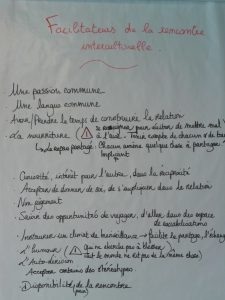 Facilitateurs de la rencontre
interculturelle.
. Une passion commune
. Une langue commune
. Avoir/Prendre le temps de construire la relation
. La nourriture (⚠ se renseigner pour éviter de mettre mal
à l'aise. Tenir compte de chacun
↳ Le repas partagé : Chacun amène quelque chose à partager
Impliquant
. Curiosité, intérêt pour l'autre, dans la réciprocité
. Accepter de donner de soi, de s'impliquer dans la relation
. Non jugement
. Saisir des opportunités de voyager, d'aller dans des espaces
de
. Instaurer un climat de bienveillance → facilite le partage, l'échange
. L'humour (⚠ Qui ne cherche pas à blesser
Tout le monde ne rit pas de la même chose)
. L'Auto-dérision
Accepter certains des stéréotypes
. Disponibilité de la rencontre